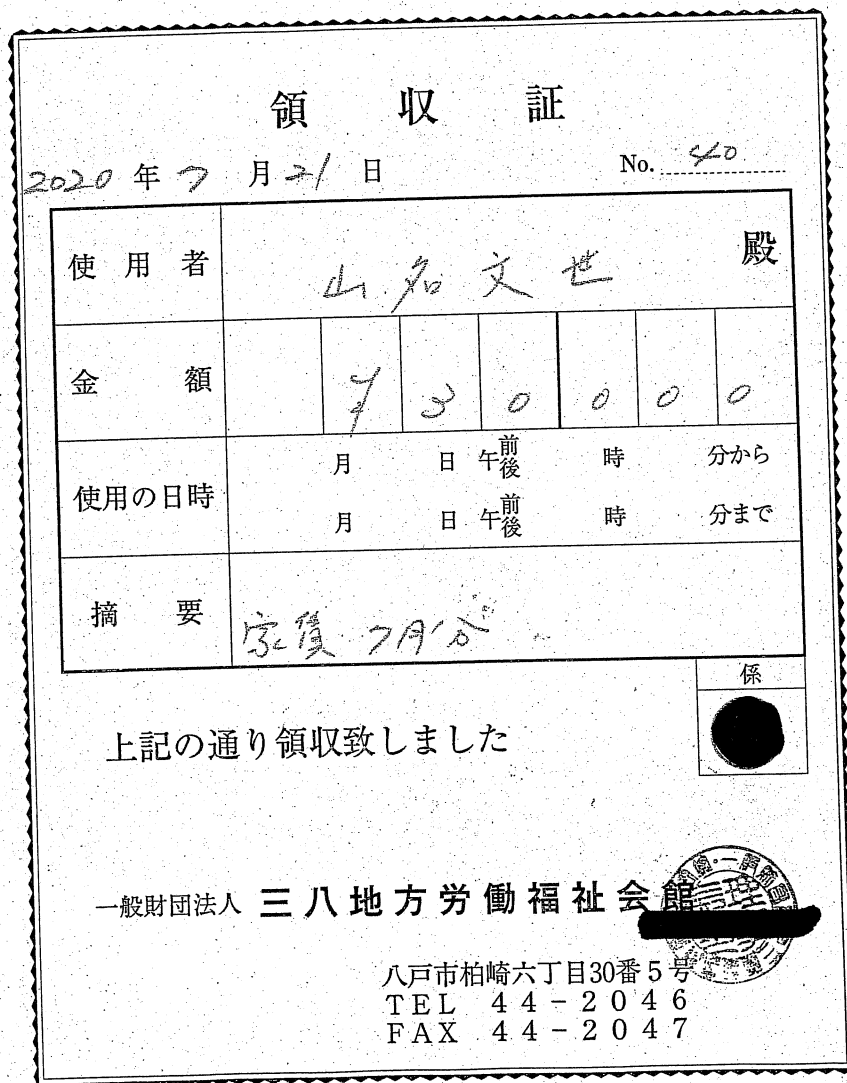 領収証
2020年7月21日 No. 40
使用者 山名文世 殿
金額 ¥30000
使用の日時 月 日 午前後 時 分から
月 日 午前後 時 分まで
摘要 家賃 7月分
係
上記の通り領収致しました
一般財団法人 三八地方労働福祉会館
八戸市柏崎六丁目30番5号
TEL 44-2046
FAX 44-2047